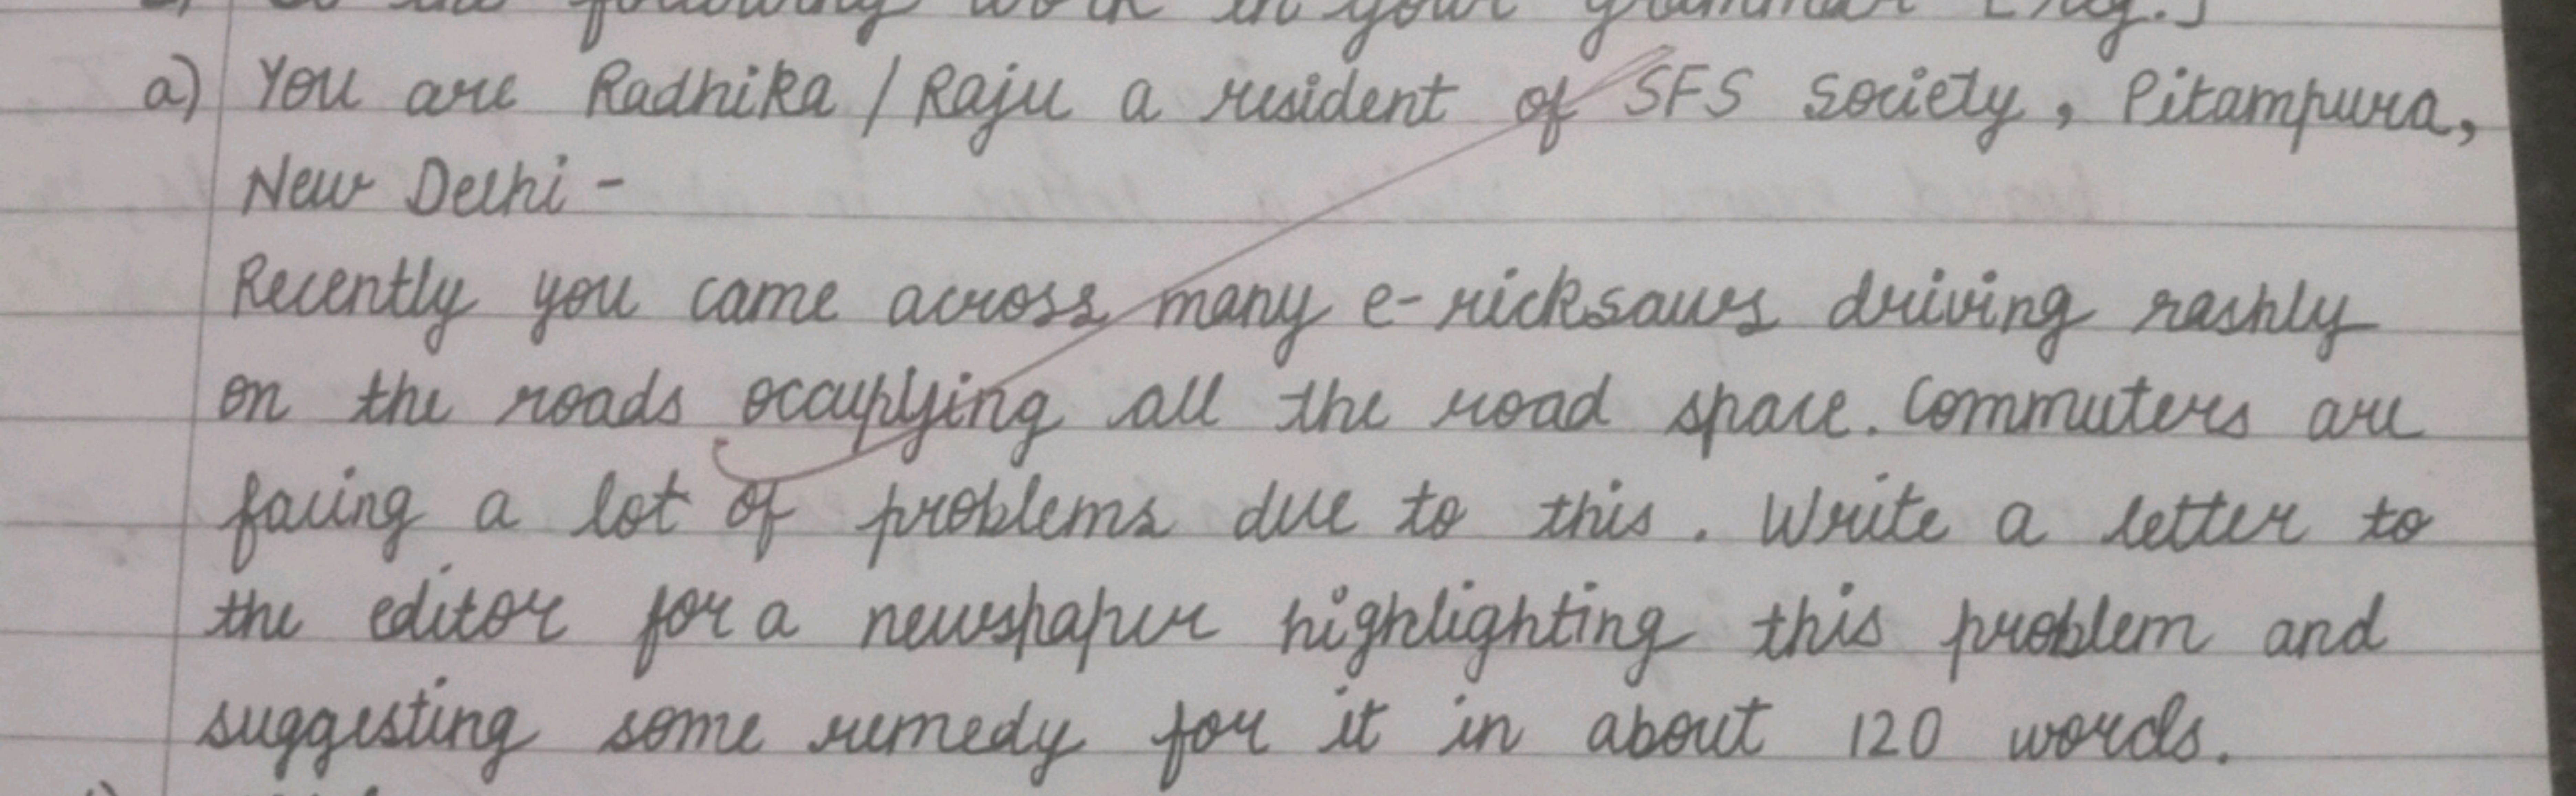 following work in your grammar
a) You are Radhika / Raju a resident of SFS Society, Pitampura,
New Delhi -
Recently you came across many e-ricksaws driving rashly
on the roads occupying all the road space. Commuters are
facing a lot of problems due to this. Write a letter to
the editor for a newspaper highlighting this problem and
suggesting some remedy for it in about 120 words.